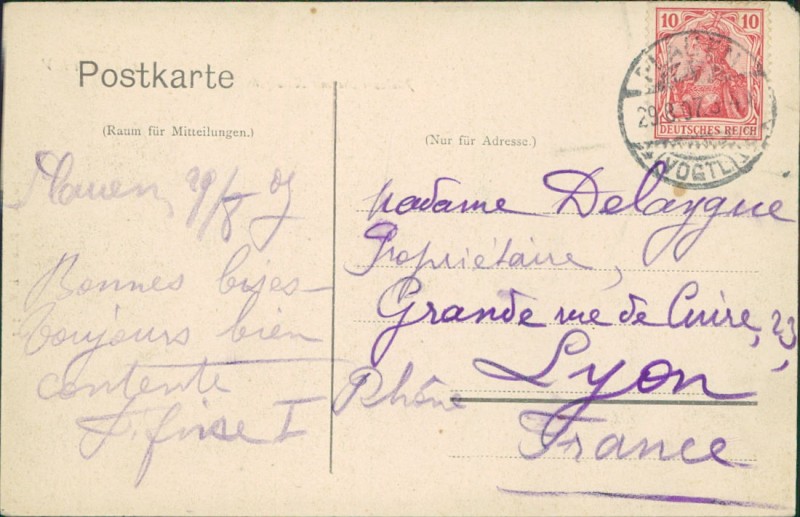 Postkarte
(Raum für Mitteilungen.)
Plauen, 29/8 07
Bonnes bises
toujours bien
contente
(Nur für Adresse.)
10 10
DEUTSCHES REICH
PLAUEN
29.8.07
(VOGTL.)
Madame Delaygue
Propriétaire,
Grande rue de Cuire, 23,
Lyon
Rhône
France